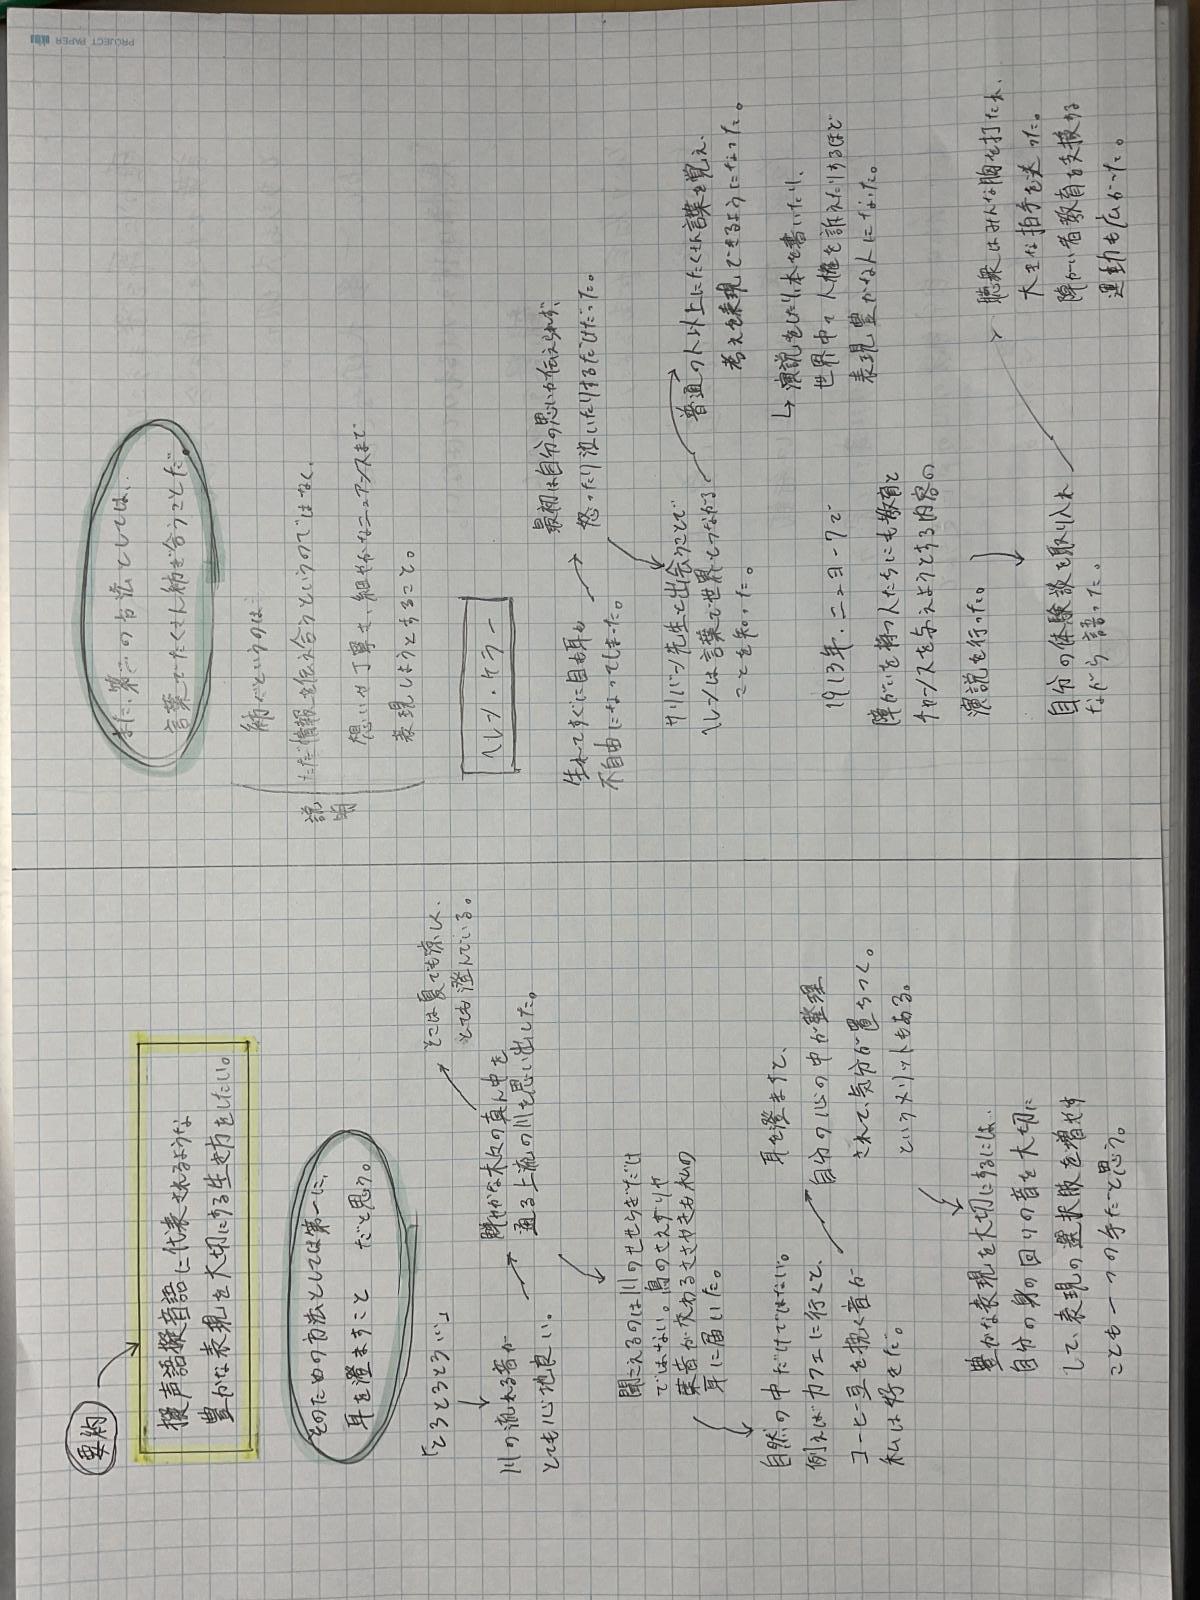 要約
擬声語擬音語に代表されるような
豊かな表現を大切にする生き方をしたい。
そのための方法としては第一に、
耳を澄ますこと だと思う。
「とろとろとろ…」
川の流れる音が
とても心地良い。
静かな木々の真ん中を
通る上流の川を思い出した。
そこは夏でも涼しく、
とても澄んでいる。
聞こえるのは川のせせらぎだけ
ではない。鳥のさえずりや
葉音が交わるささやきも私の
耳に届いた。
自然の中だけではない。
例えばカフェに行くと、
コーヒー豆を挽く音が
私は好きだ。
耳を澄ますと、
自分の心の中が整理
されて、気分が落ちつく。
というメリットもある。
豊かな表現を大切にするには…
自分の身の回りの音を大切に
して、表現の選択肢を増やす
ことも一つの手だと思う。
また、第二の方法としては、
言葉でたくさん紡ぎ合うことだ。
説明
紡ぐというのは…
ただ情報を伝え合うというのではなく、
想いや丁寧さ、細やかなニュアンスまで
表現しようとすること。
ヘレン・ケラー
生れてすぐに目も耳も
不自由になってしまった。
最初は自分の思いが伝えられず、
怒ったり泣いたりするだけだった。
サリバン先生と出会うことで
ヘレンは言葉で世界とつながる
ことを知った。
普通の人以上にたくさん言葉を覚え、
考えを表現できるようになった。
↳ 演説をしたり、本を書いたり、
世界中で人権を訴えたりするほど
表現豊かな人になれた。
1913年、ニューヨークで
障がいを持つ人たちにも教育と
チャンスを与えようとする内容の
演説を行った。
自分の体験談を取り入れ
ながら語った。
聴衆はみんな胸を打たれ、
大きな拍手を送った。
障がい者教育を支援する
運動も広がった。
PROJECT PAPER